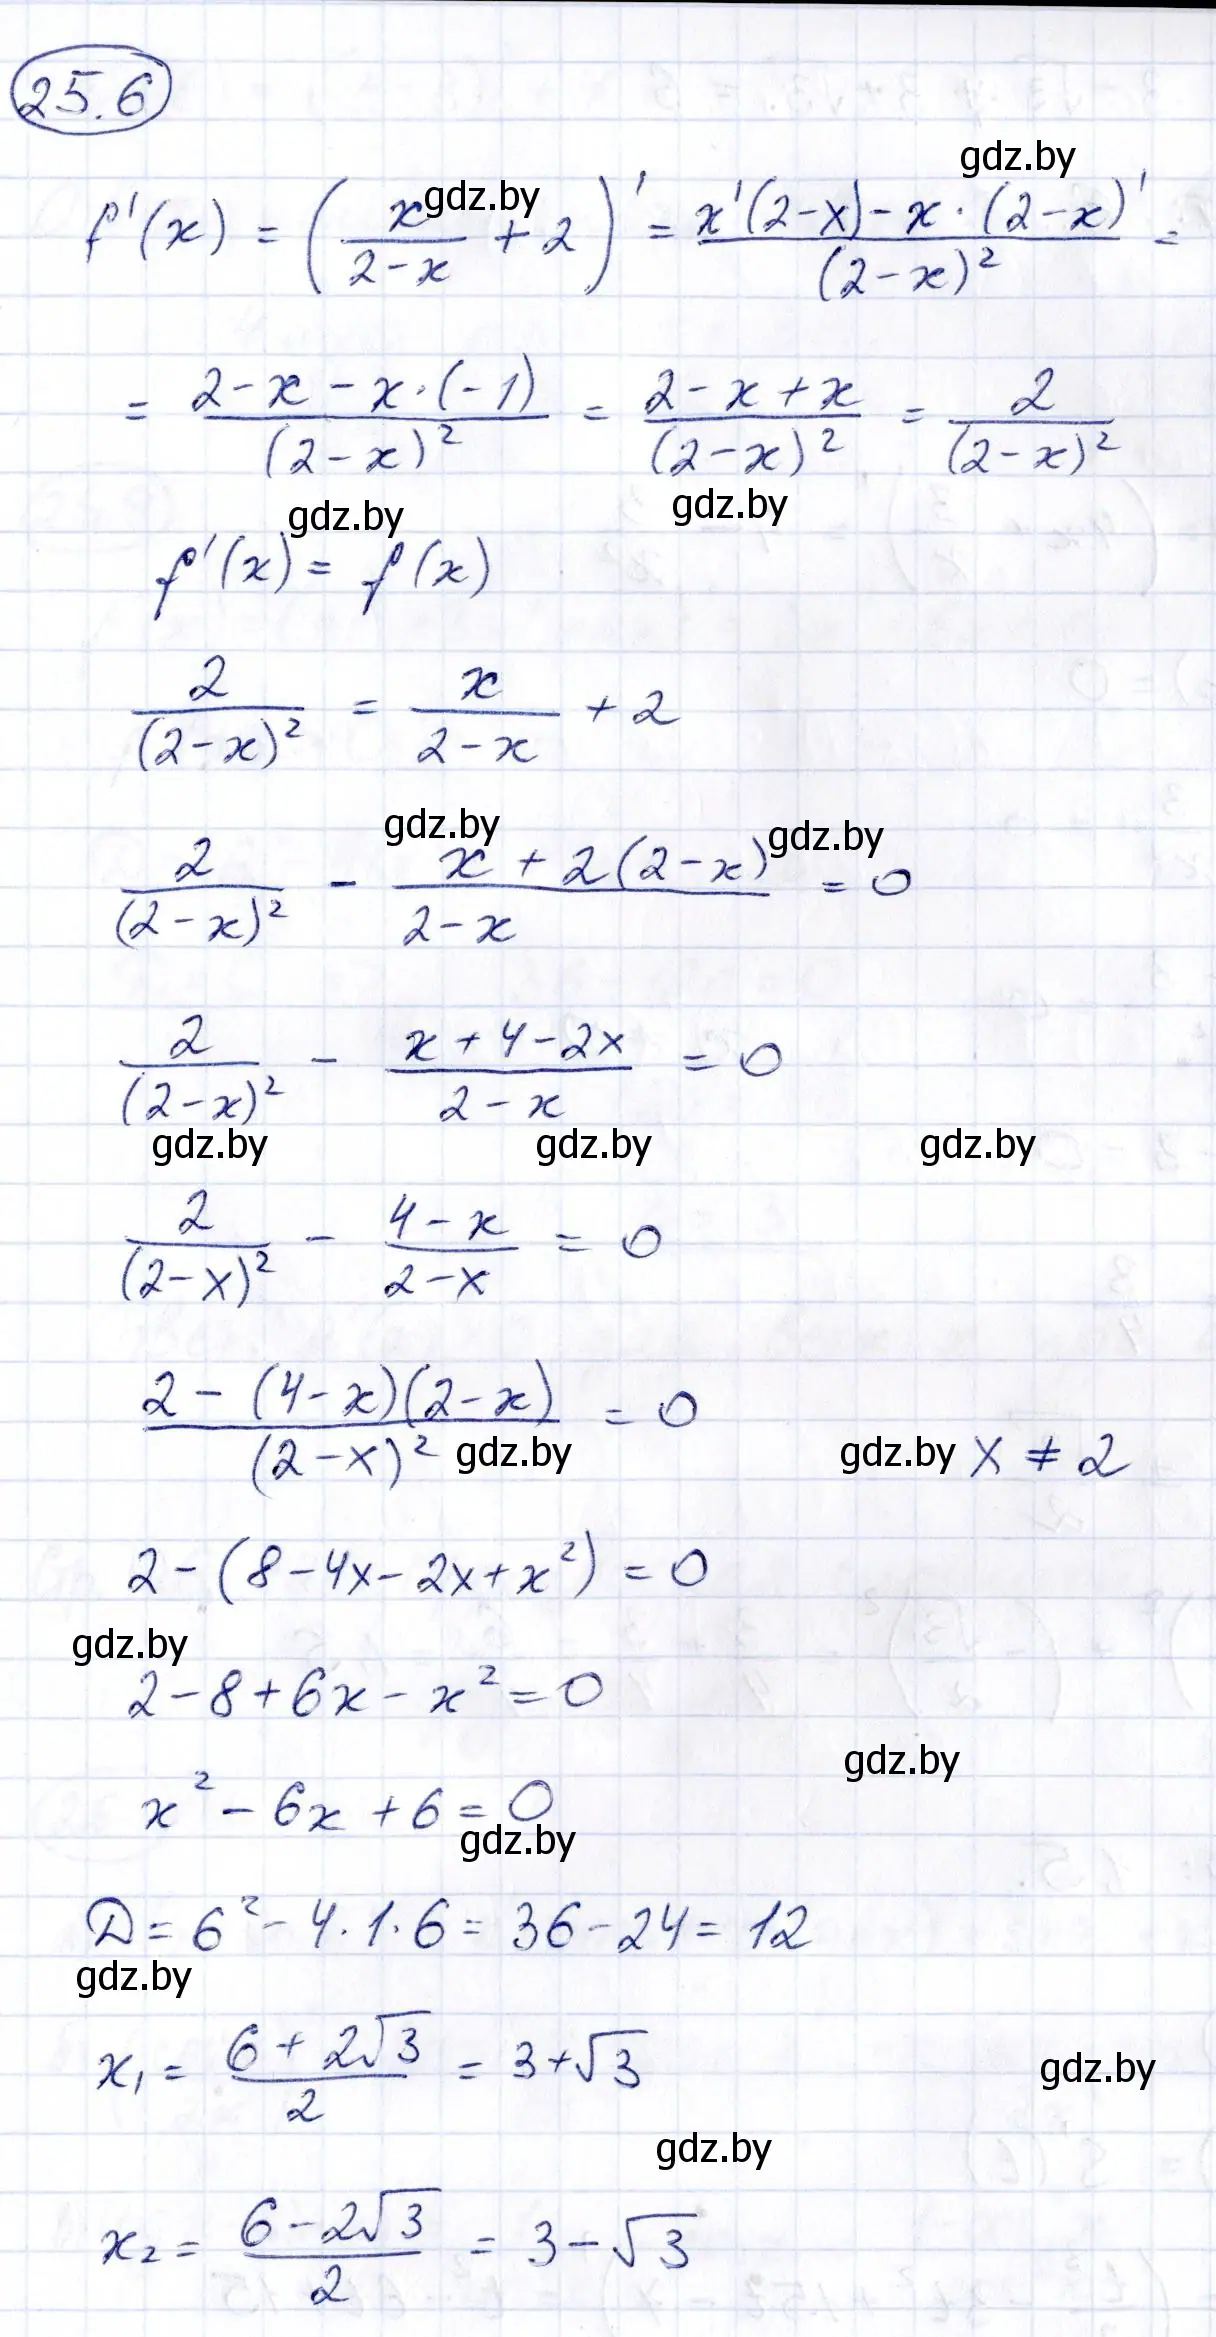 25.6
gdz.by
gdz.by
f'(x) = (x/(2-x) + 2)' = (x'(2-x) - x·(2-x)')/(2-x)² =
= (2-x-x·(-1))/(2-x)² = (2-x+x)/(2-x)² = 2/(2-x)²
gdz.by gdz.by
f'(x) = f(x)
2/(2-x)² = x/(2-x) + 2
gdz.by gdz.by
2/(2-x)² - (x+2(2-x))/(2-x) = 0
2/(2-x)² - (x+4-2x)/(2-x) = 0
gdz.by gdz.by gdz.by
2/(2-x)² - (4-x)/(2-x) = 0
(2-(4-x)(2-x))/(2-x)² = 0 x ≠ 2
gdz.by gdz.by
2-(8-4x-2x+x²) = 0
gdz.by
2-8+6x-x² = 0
gdz.by
x²-6x+6 = 0
gdz.by
D = 6²-4·1·6 = 36-24 = 12
gdz.by
x₁ = (6+2√3)/2 = 3+√3
gdz.by
gdz.by
x₂ = (6-2√3)/2 = 3-√3